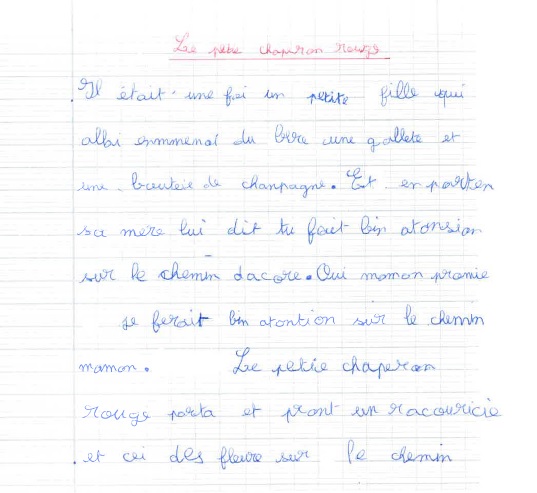 Le petie chaperon rouge
Il était une foi un petite fille qui
allai emmenai du bire une gallete et
une bouteie de chanpagne. Et en parten
sa mère lui dit tu fait bin atonsion
sur le chemin dacore. Oui maman promie
je ferait bin atontion sur le chemin
maman. Le petie chaperon
rouge parta et pront un racouricie
et cei des fleure sur le chemin